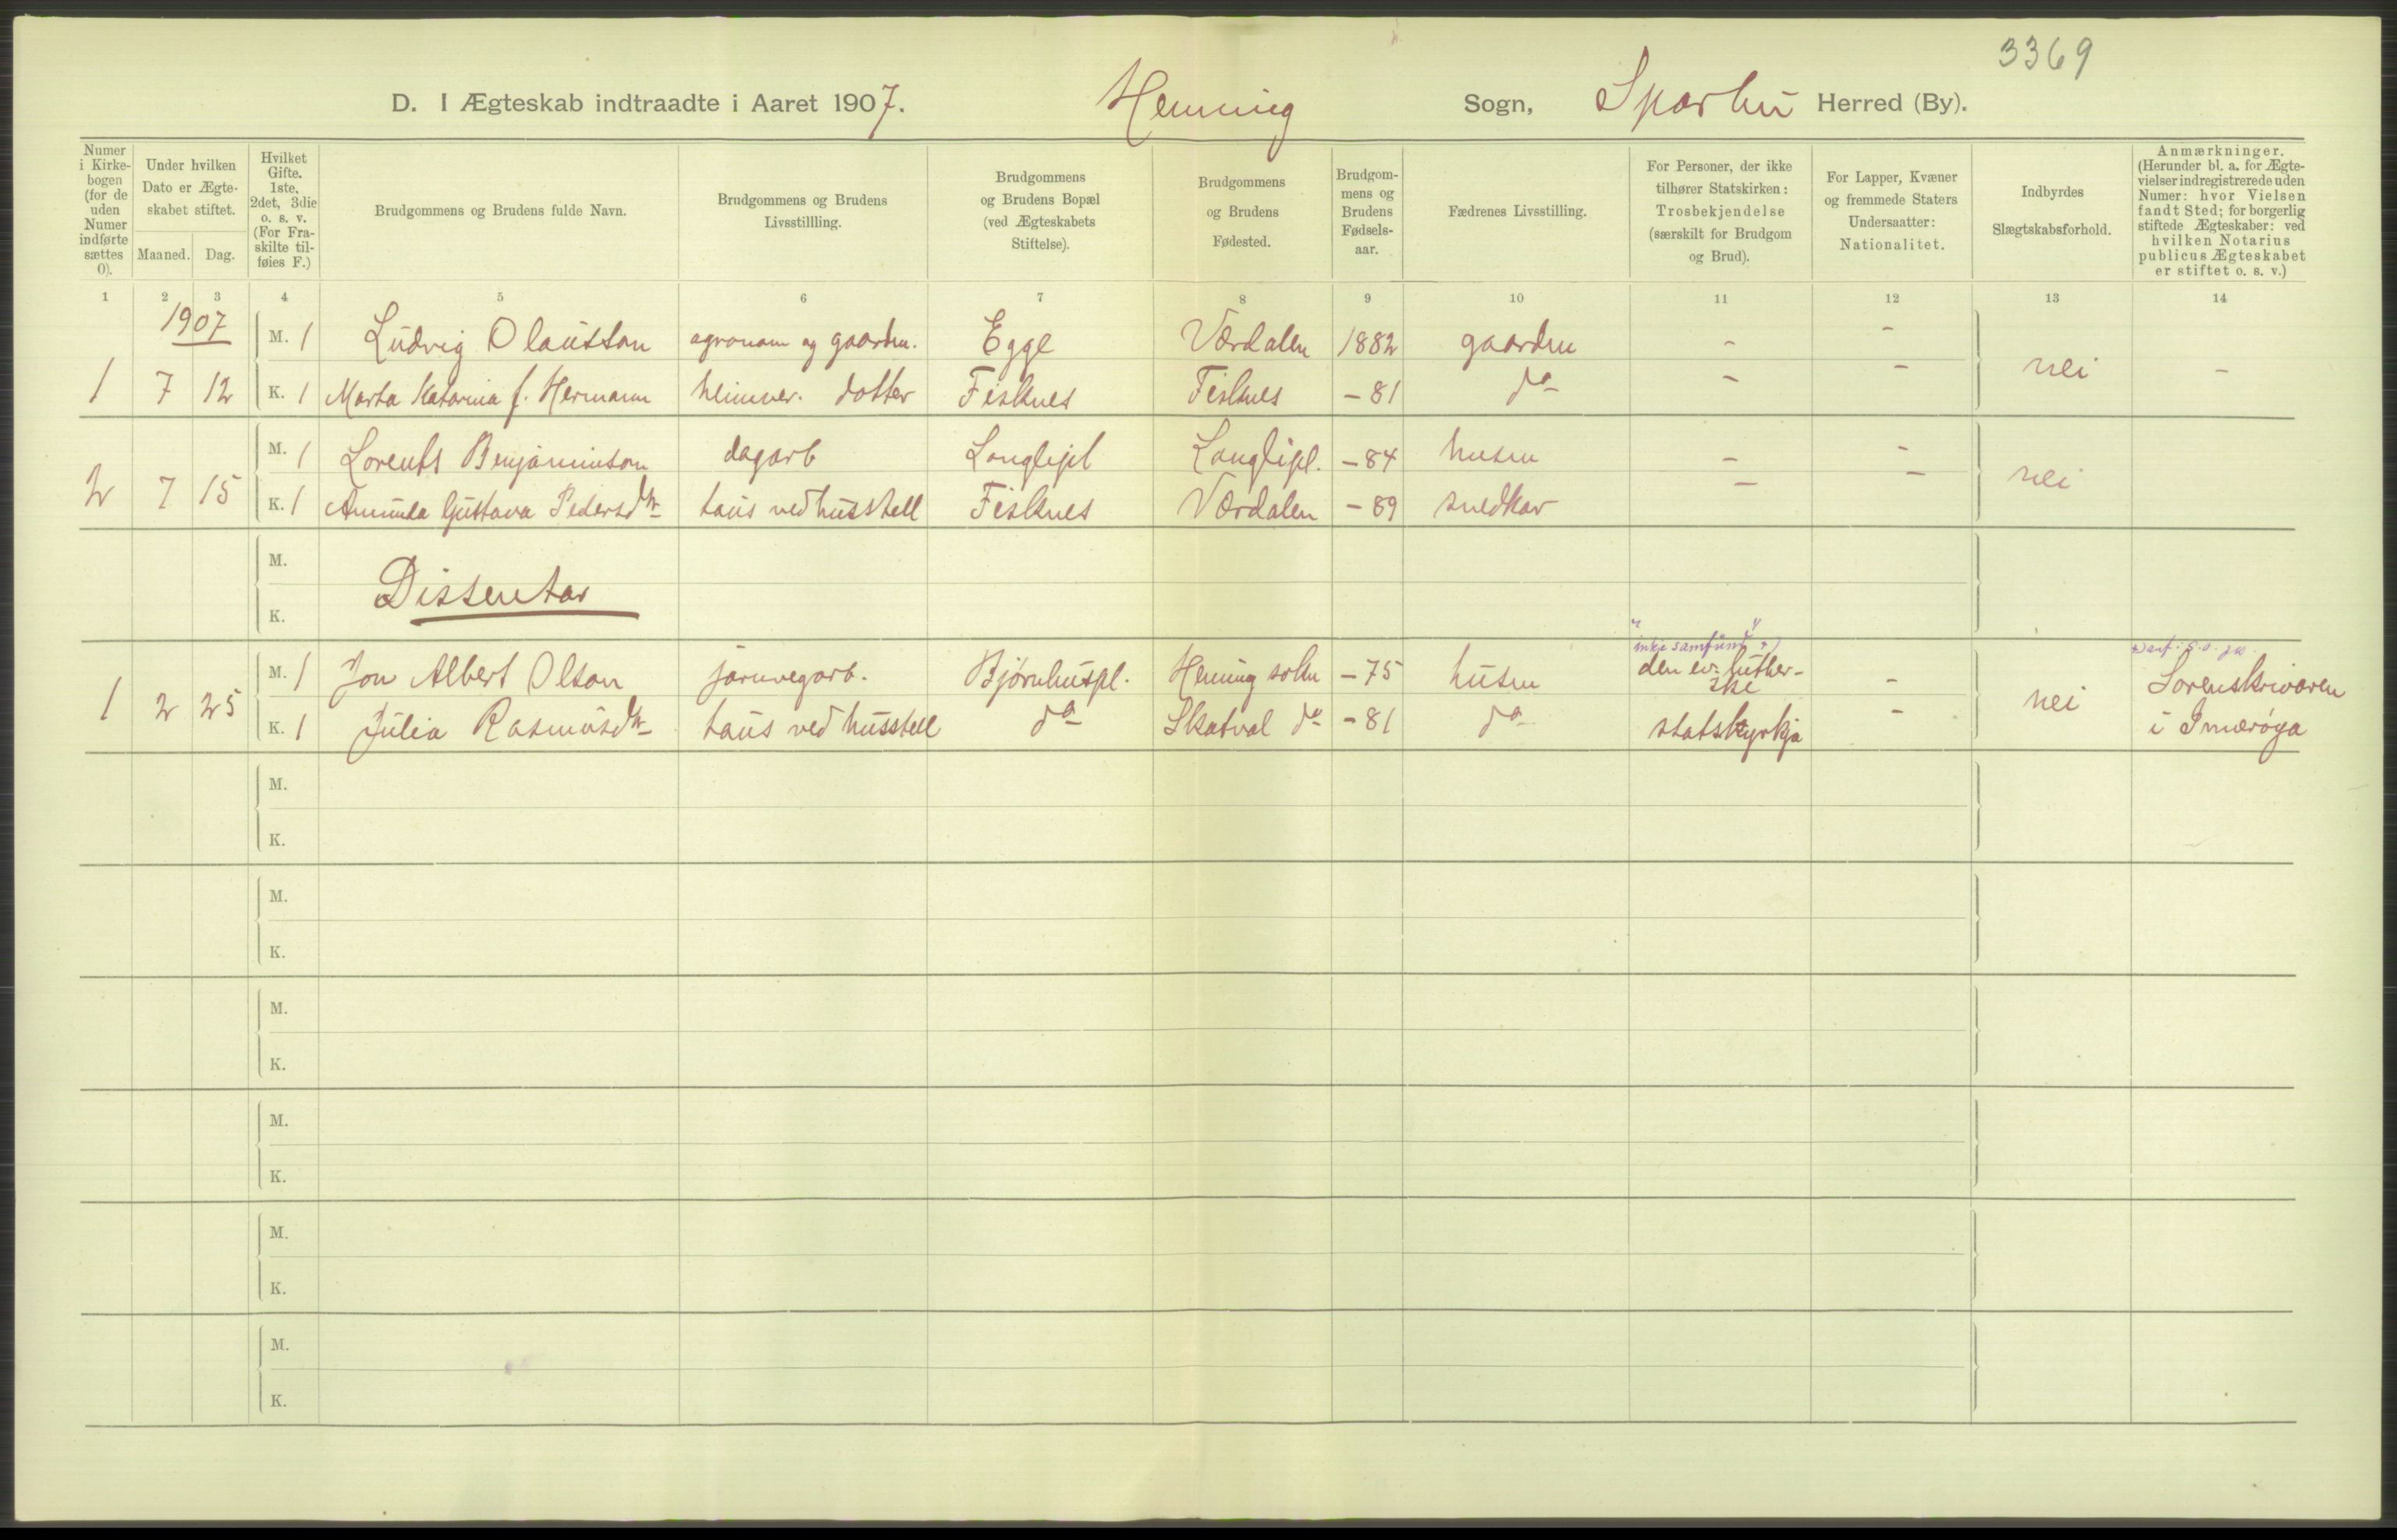 3369
D. I Ægteskab indtraadte i Aaret 1907. Henning Sogn, Sparbu Herred (By).
Numer i Kirkebogen (for de uden Numer indførte sættes 0).
Under hvilken Dato er Ægteskabet stiftet.
Maaned. Dag.
Hvilket Gifte. 1ste, 2det, 3die o. s. v. (For Fraskilte tilføies F.)
Brudgommens og Brudens fulde Navn.
Brudgommens og Brudens Livsstillling.
Brudgommens og Brudens Bopæl (ved Ægteskabets Stiftelse).
Brudgommens og Brudens Fødested.
Brudgommens og Brudens Fødselsaar.
Fædrenes Livsstilling.
For Personer, der ikke tilhører Statskirken: Trosbekjendelse (særskilt for Brudgom og Brud).
For Lapper, Kvæner og fremmede Staters Undersaatter: Nationalitet.
Indbyrdes Slægtskabsforhold.
Anmærkninger. (Herunder bl. a. for Ægtevielser indregistrerede uden Numer: hvor Vielsen fandt Sted; for borgerlig stiftede Ægteskaber: ved hvilken Notarius publicus Ægteskabet er stiftet o. s. v.)
1 2 3 4 5 6 7 8 9 10 11 12 13 14
1907
M. 1 Ludvig Olausson agronom og gaardm. Egge Værdalen 1882 gaardm - -
1 7 12 K. 1 Marta Katarina f. Hermann heimver. dotter Fisknes Fisknes - 81 do - - nei -
M. 1 Lorents Benjaminson dagarb Langlipl Langlipl. - 84 husm - -
2 7 15 K. 1 Amunda Gustava Pedersdtr taus ved husstell Fisknes Værdalen - 89 snedkar - - nei
M.
Dissentar
K.
"inkje samfund" +)
M. 1 Jon Albert Olson jarnvegarb. Bjørnhuspl. Henning sokn - 75 husm den ev. lutherske - Sorenskrivaren
1 2 25 K. 1 Julia Rasmusdtr taus ved husstell do Skatval do - 81 do statskyrkja - nei i Inderøya
M.
K.
M.
K.
M.
K.
M.
K.
M.
K.
M.
K.